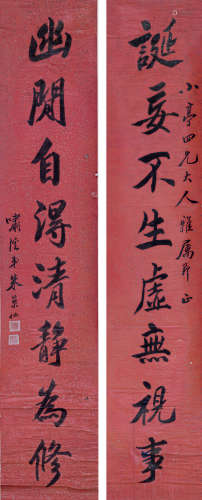 誕妄不生虛無視事
小亭四兄大人雅屬即正
幽閒自得清靜為修
嘯陰弟朱